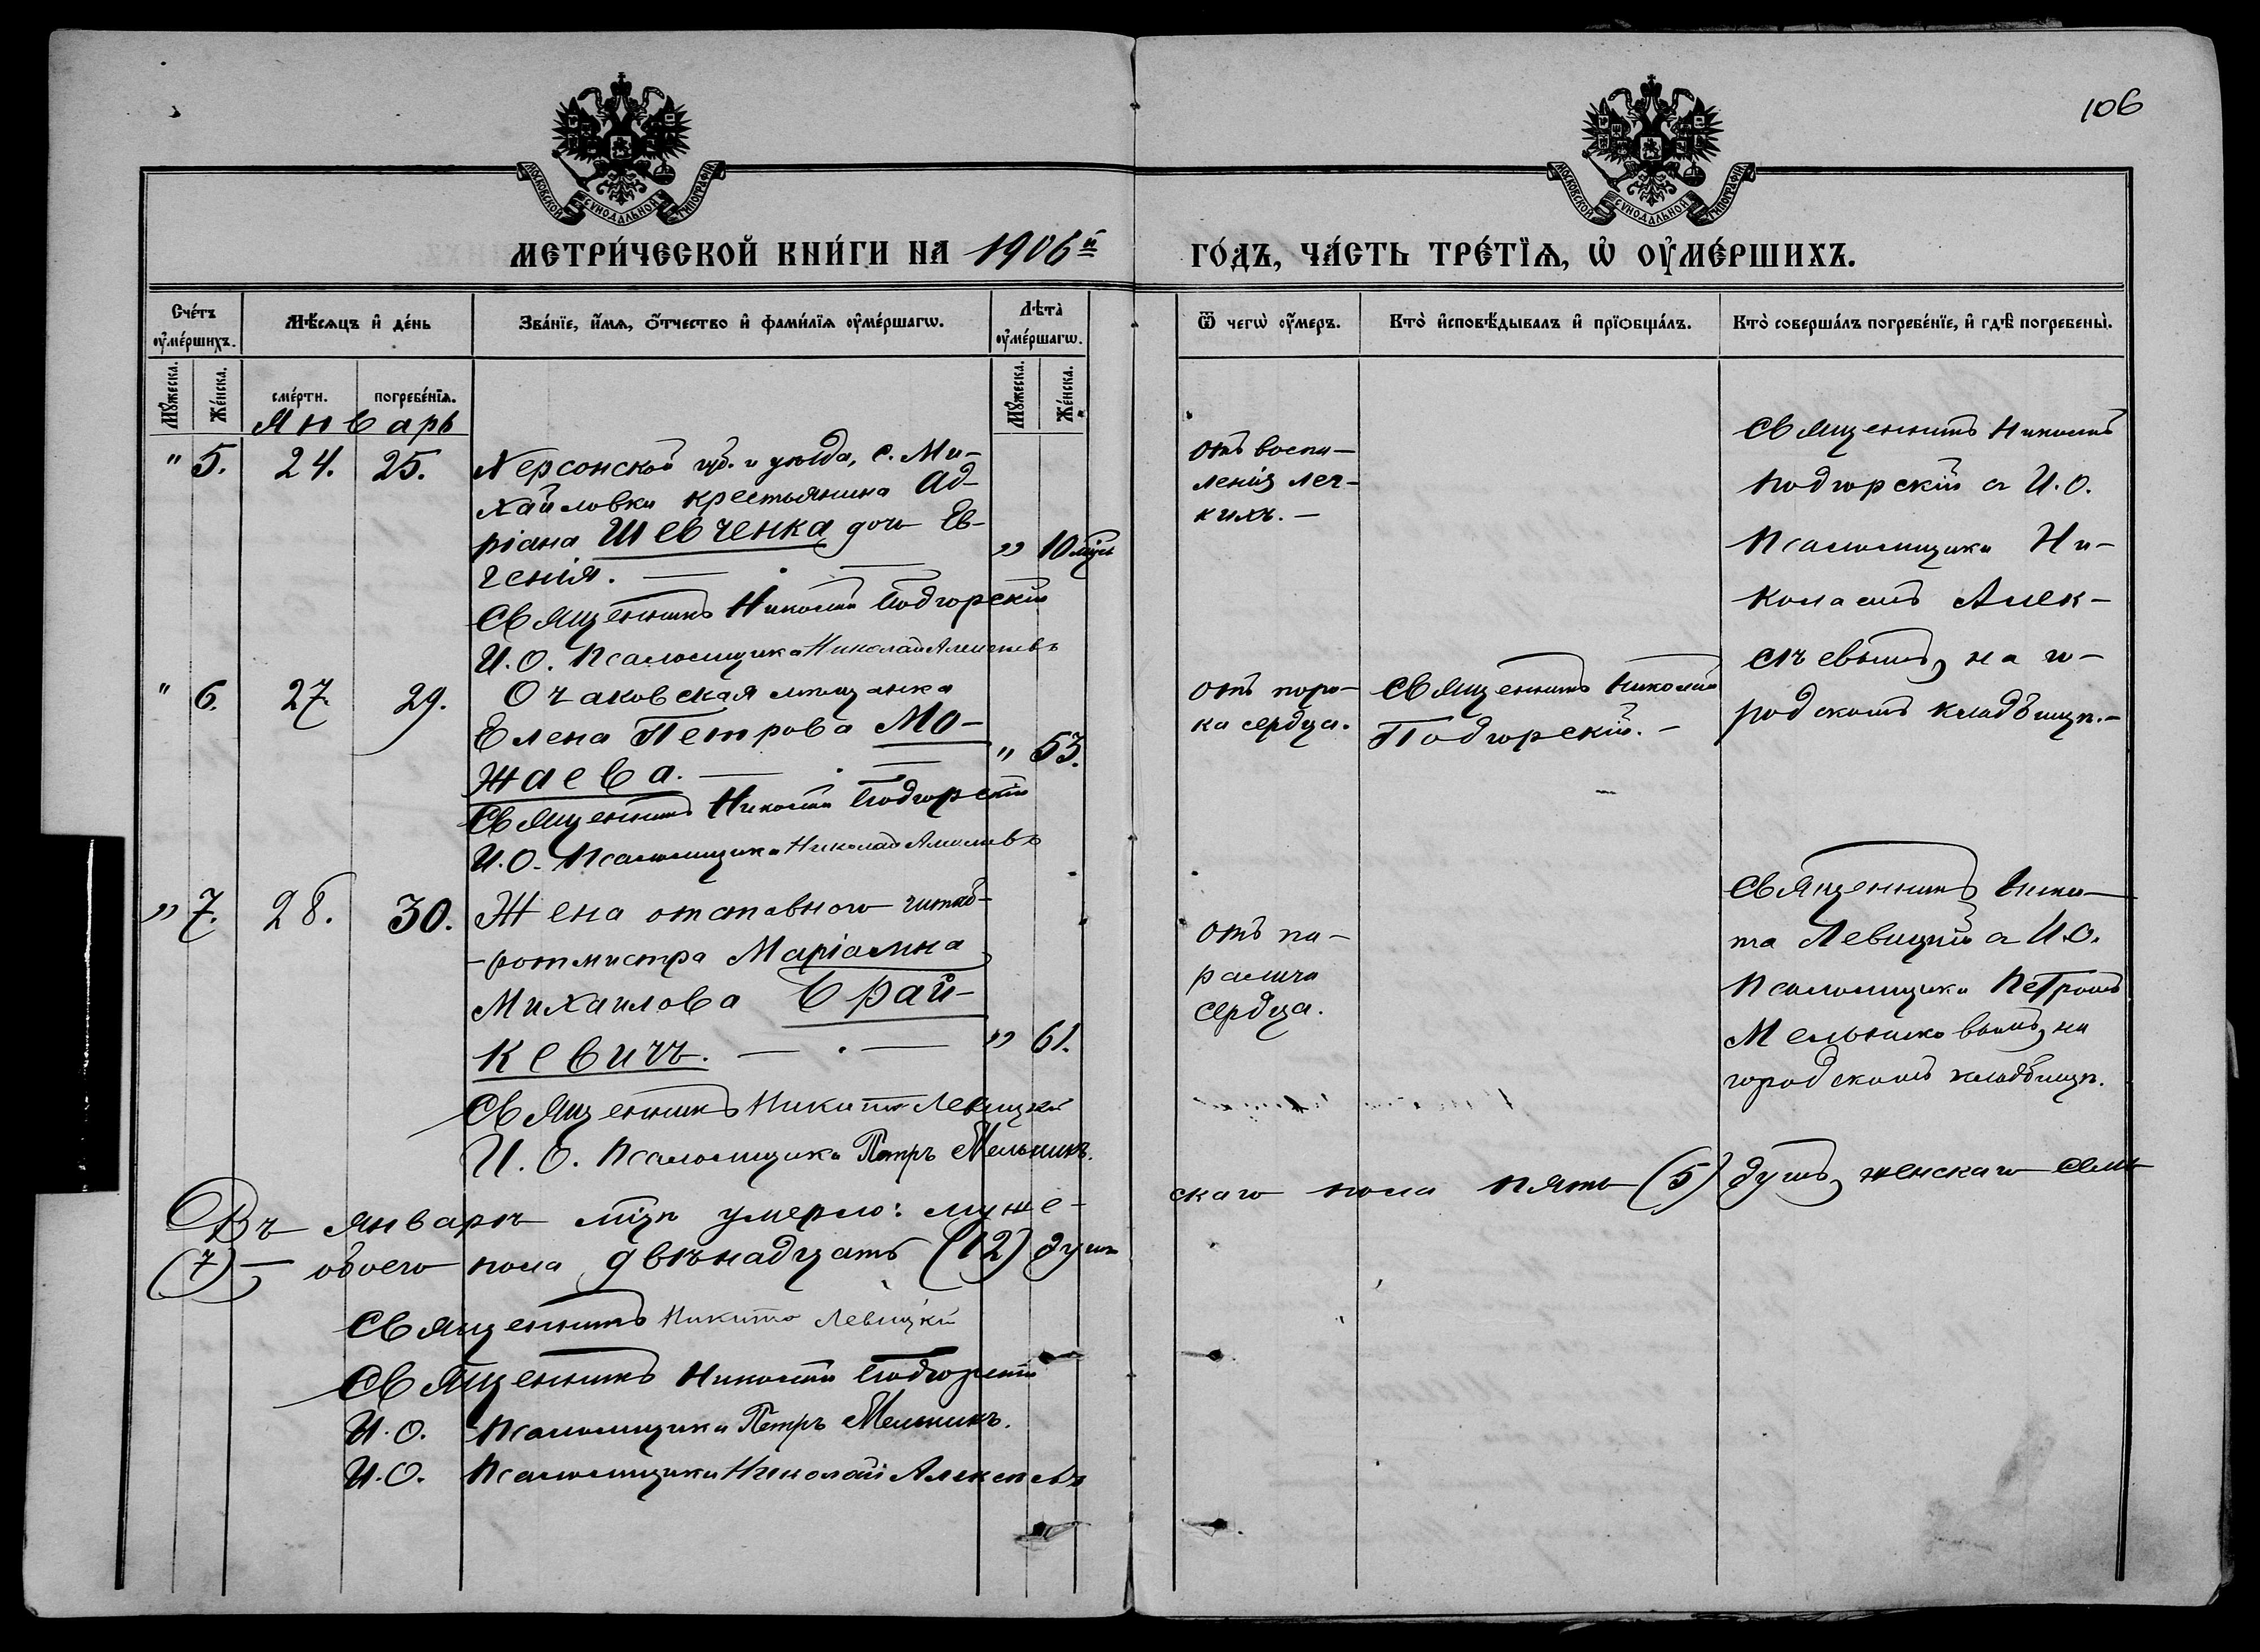 106
МОСКОВСКОЙ СУНОДАЛЬНОЙ ТИПОГРАФІИ
МОСКОВСКОЙ СУНОДАЛЬНОЙ ТИПОГРАФІИ
МЕТРИ́ЧЕСКОЙ КНИ́ГИ НА 1906й
ГО́ДЪ, ЧА́СТЬ ТРЕ́ТЇѦ, Ѡ҆ ОУ҆МЕ́РШИХЪ.
Сче́тъ оу҆ме́ршихъ.
Мѣ́сѧцъ и҆ де́нь
Зва́нїе, и҆́мѧ, ѻ҆́тчество и҆ фами́лїѧ оу҆ме́ршагѡ.
Лѣта̀ оу҆ме́ршагѡ.
Ѿ чегѡ̀ оу҆́меръ.
Кто̀ и҆сповѣ́дывалъ и҆ прїѻбща́лъ.
Кто̀ соверша́лъ погребе́нїе, и҆ гдѣ̀ погребены̀.
Мꙋ́жеска.
Же́нска.
сме́рти.
погребе́нїѧ.
Мꙋ́жеска.
Же́нска.
Январь
" 5. 24. 25. Херсонской губ. и уѣзда, с. Ми-
хайловки крестьянина Ад-
ріана Шевченка дочь Ев-
генія. — . — " 10 мѣс
Священникъ Николай Подгорскій
И.О. Псаломщика Николай Алексѣевъ
отъ воспа-
ленія лег-
кихъ. —
Священникъ Николай
Подгорскій съ И.О.
Псаломщика Ни-
колаемъ Алек-
сѣевымъ, на го-
родскомъ кладбищѣ. —
" 6. 27. 29. Очаковская мѣщанка
Елена Петрова Мо-
жаева. — . — " 53.
Священникъ Николай Подгорскій
И.О. Псаломщика Николай Алексѣевъ
отъ поро-
ка сердца.
Священникъ Николай
Подгорскій. —
" 7. 28. 30. Жена отставного штаб-
-ротмистра Маріамна
Михаилова Брай-
кевичъ. — . — " 61.
Священникъ Никита Левицкій
И.О. Псаломщика Петръ Мельникъ.
отъ па-
ралича
сердца.
Священникъ Ники-
та Левицкій съ И.О.
Псаломщика Петромъ
Мельниковымъ, на
городскомъ кладбищѣ.
Въ январѣ мцѣ умерло: муже-
скаго пола пять (5) душъ, женскаго семь
(7) — обоего пола двѣнадцать (12) душъ
Священникъ Никита Левицкій
Священникъ Николай Подгорскій
И.О. Псаломщика Петръ Мельникъ.
И.О. Псаломщика Николай Алексѣевъ